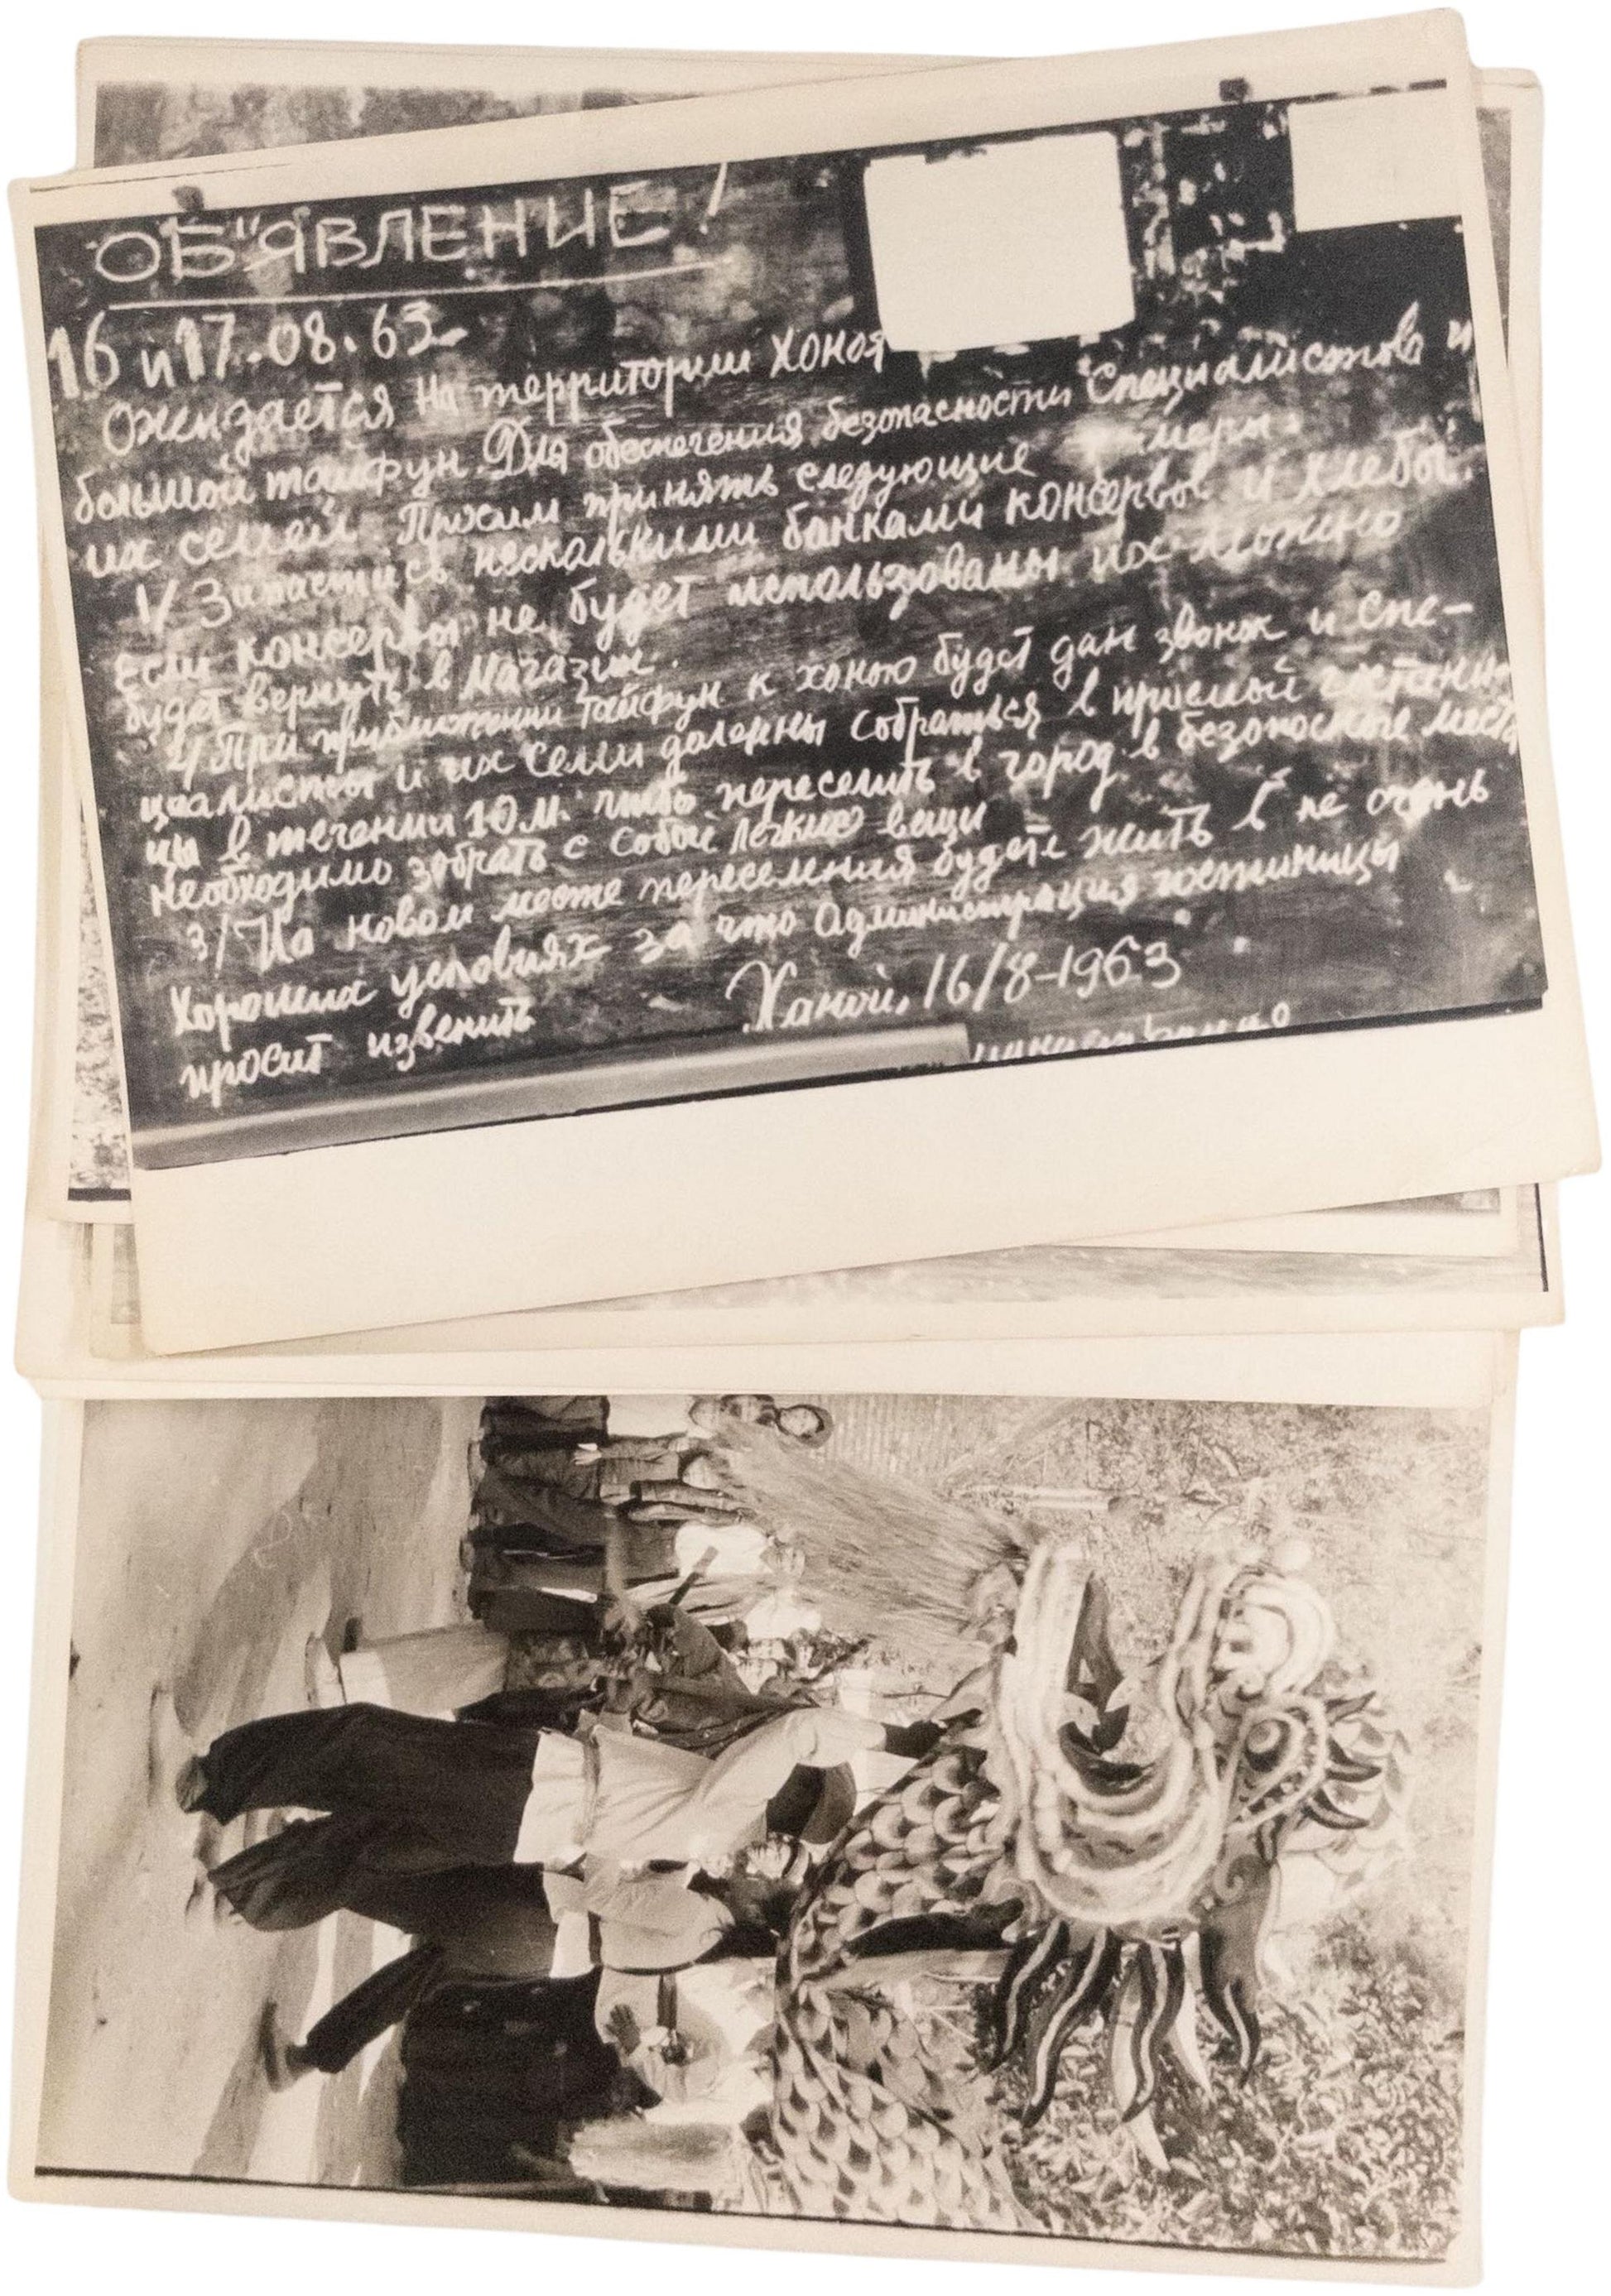 ОБ"ЯВЛЕНИЕ!
16 и 17.08.63.
Ожидается на территории Хоноя
большой тайфун. Для обеспечения безопасности специалистов и
их семей. Просим принять следующие меры:
1/ Запастись несколькими банками консервов и хлебом.
Если консервы не будет использованы их можно
будет вернуть в магазин.
2/ При приближении тайфун к ханою будет дан звонок и спе-
циалисты и их семи должны собраться в приемой гостини-
цы в течении 10 м. чтобы переселить в город в безопосное место
необходимо забрать с собой легкие вещи
3/ На новом месте переселения будете жить в не очень
хороших условиях за что администрация гостиницы
просит извенить
Ханой, 16/8-1963